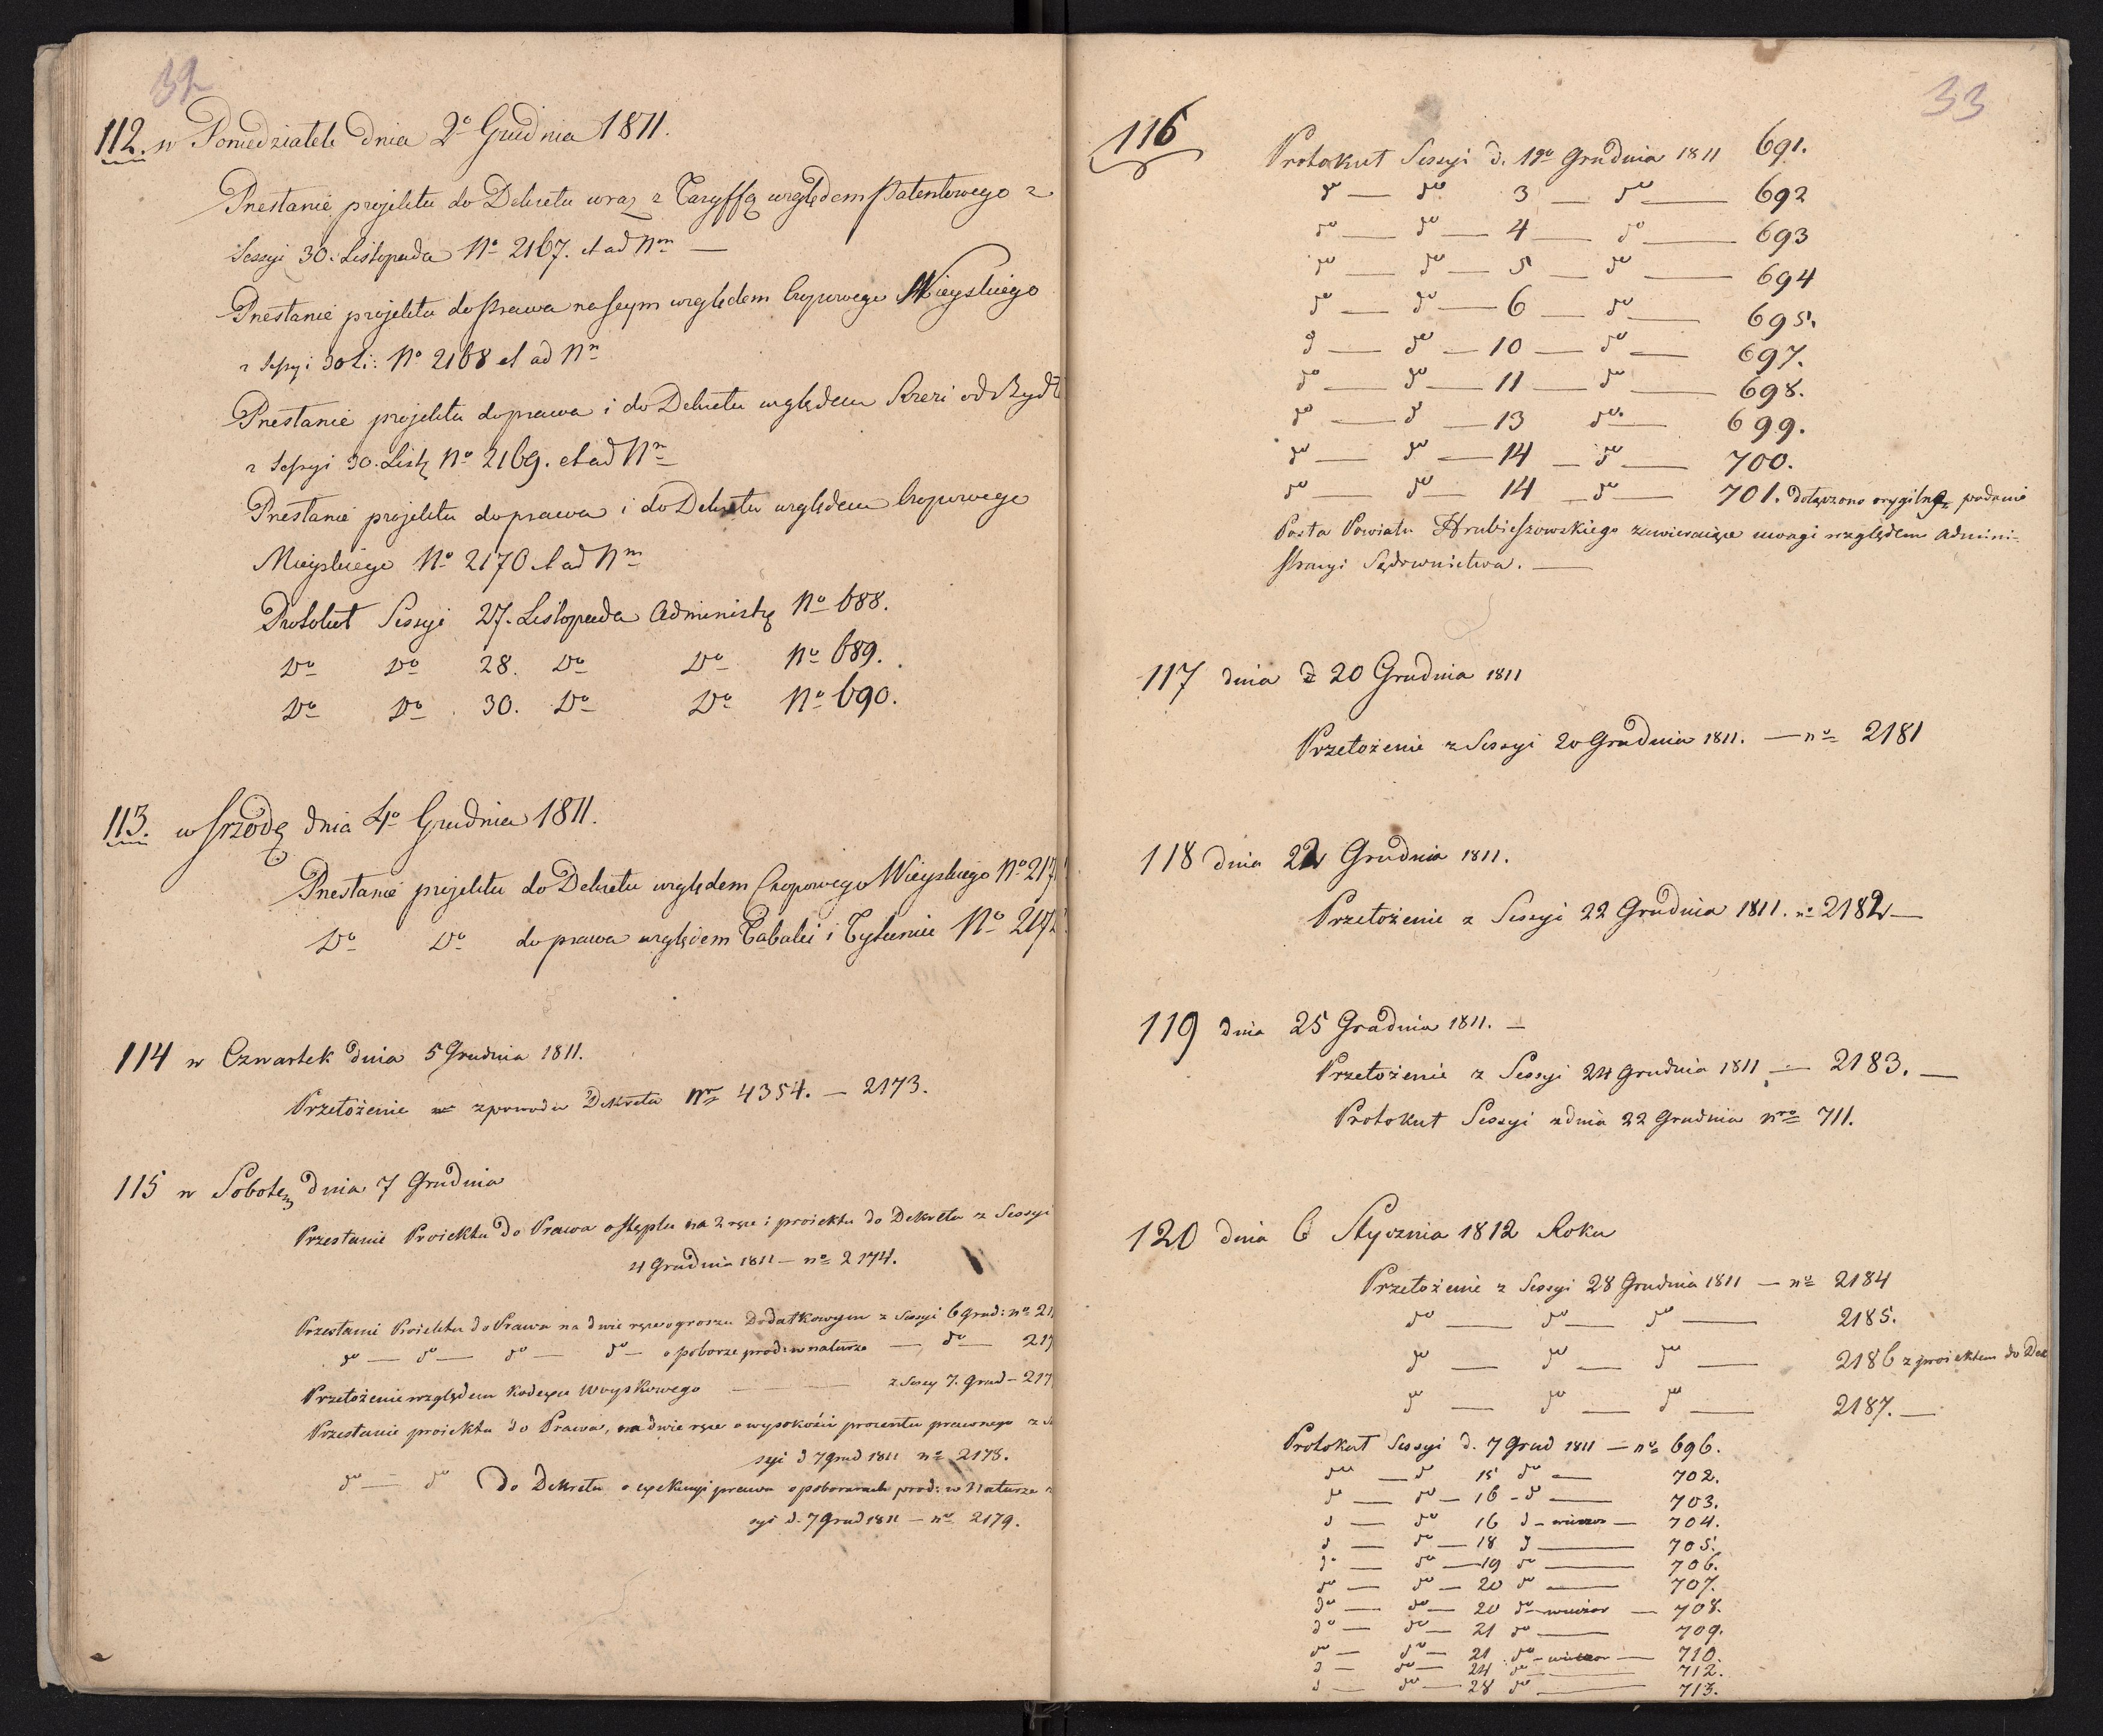 32
112. w Poniedziałek dnia 2º Grudnia 1811.
Przesłanie projektu do Dekretu wraz z Taryffą względem Patentowego z
Sessyi 30. Listopada Nº 2167. et ad Nm —
Przesłanie projektu do Prawa na Seym względem Czopowego Wieyskiego
z Sessyi 30 L: Nº 2168 et ad Nm
Przesłanie projektu do prawa i do Dekretu względem Rzezi od Bydł
z Sessyi 30. List Nº 2169. et ad Nm
Przesłanie projektu do prawa i do Dekretu względem Czopowego
Mieyskiego Nº 2170 et ad Nm
Protokuł Sessyi 27. Listopada Administ Nº 688.
Dº Dº 28. Dº Dº Nº 689.
Dº Dº 30. Dº Dº Nº 690.
113. w Srzodę dnia 4º Grudnia 1811.
Przesłanie projektu do Dekretu względem Czopowego Wieyskiego Nº 217
Dº Dº do prawa względem Tabaki i Tytuniu Nº 217
114 w Czwartek dnia 5 Grudnia 1811.
Przełożenie z powodu Dekretu Nro 4354. — 2173.
115 w Sobotę dnia 7 Grudnia
Przesłanie Proiektu do Prawa o stęplu na 2 ręce i proiektu do Dekretu z Sessyi
4 Grudnia 1811 — nº 2174.
Przesłanie Proiektu do Prawa na dwie ręce o groszu Dodatkowym z Sessyi 6 grud: nº 21
dº — dº — dº — dº — o poborze prod: w naturze — dº — 217
Przełożenie względem Kodexu Woyskowego — z Sessy 7. Grud — 217
Przesłanie proiektu do Prawa, na dwie ręce o wysokości procentu prawnego z S
syi d 7 grud 1811 nº 2178.
dº — dº Do Dekretu o exekucyi prawa o poborach prod: w Naturze
syi d. 7 Grud 1811 — nº 2179.
33
116
Protokuł Sessyi d. 1go Grudnia 1811 691.
dº — dº 3 — dº — 692
dº — dº — 4 — dº — 693
dº — dº — 5 — dº — 694
dº — dº — 6 — dº — 695.
d — dº — 10 — dº — 697.
dº — dº — 11 — dº — 698.
dº — d — 13 dº — 699.
dº — dº — 14 — dº — 700.
dº — dº — 14 — dº — 701. dołączono orygilne podanie
Posła Powiatu Hrubieszowskiego zawieraiące uwagi względem Admini-
stracyi Sądownictwa. —
117 dnia 20 Grudnia 1811
Przełożenie z Sessyi 20 Grudnia 1811. — nº 2181
118 dnia 22 Grudnia 1811.
Przełożenie z Sessyi 22 Grudnia 1811. nº 2182 —
119 dnia 25 Grudnia 1811. —
Przełożenie z Sessyi 24 Grudnia 1811 — 2183. —
Protokuł Sessyi z dnia 22 Grudnia nro 711.
120 dnia 6 Stycznia 1812 Roku
Przełożenie z Sessyi 28 Grudnia 1811 — nº 2184
dº — dº — dº — 2185.
dº — dº — dº — 2186 z proiektem do Dek
dº — dº — dº — 2187. —
Protokuł Sessyi d. 7 Grud 1811 — nº 696.
dº — dº 15 dº — 702.
dº — dº — 16 — d — 703.
d — dº 16 d — wieczor — 704.
d — dº — 18 d — 705.
dº — dº — 19 dº — 706.
dº — dº — 20 dº — 707.
dº — dº — 20 dº — wieczor — 708.
dº — dº — 21 dº — 709.
dº — dº — 21 dº — wieczor — 710.
d — dº — 24 dº — 712.
d — dº — 28 dº — 713.